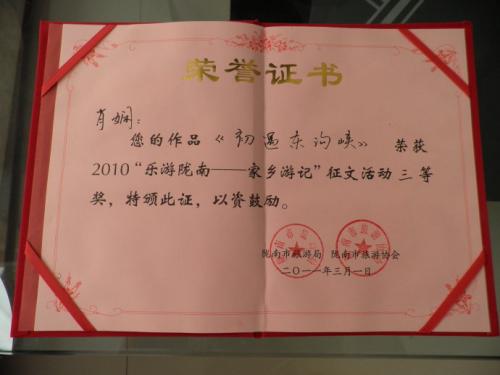 荣誉证书
肖娴:
您的作品《初遇东沟峡》 荣获
2010“乐游陇南——家乡游记”征文活动三等
奖,特颁此证,以资鼓励。
陇南市旅游局 陇南市旅游协会
二〇一一年三月一日